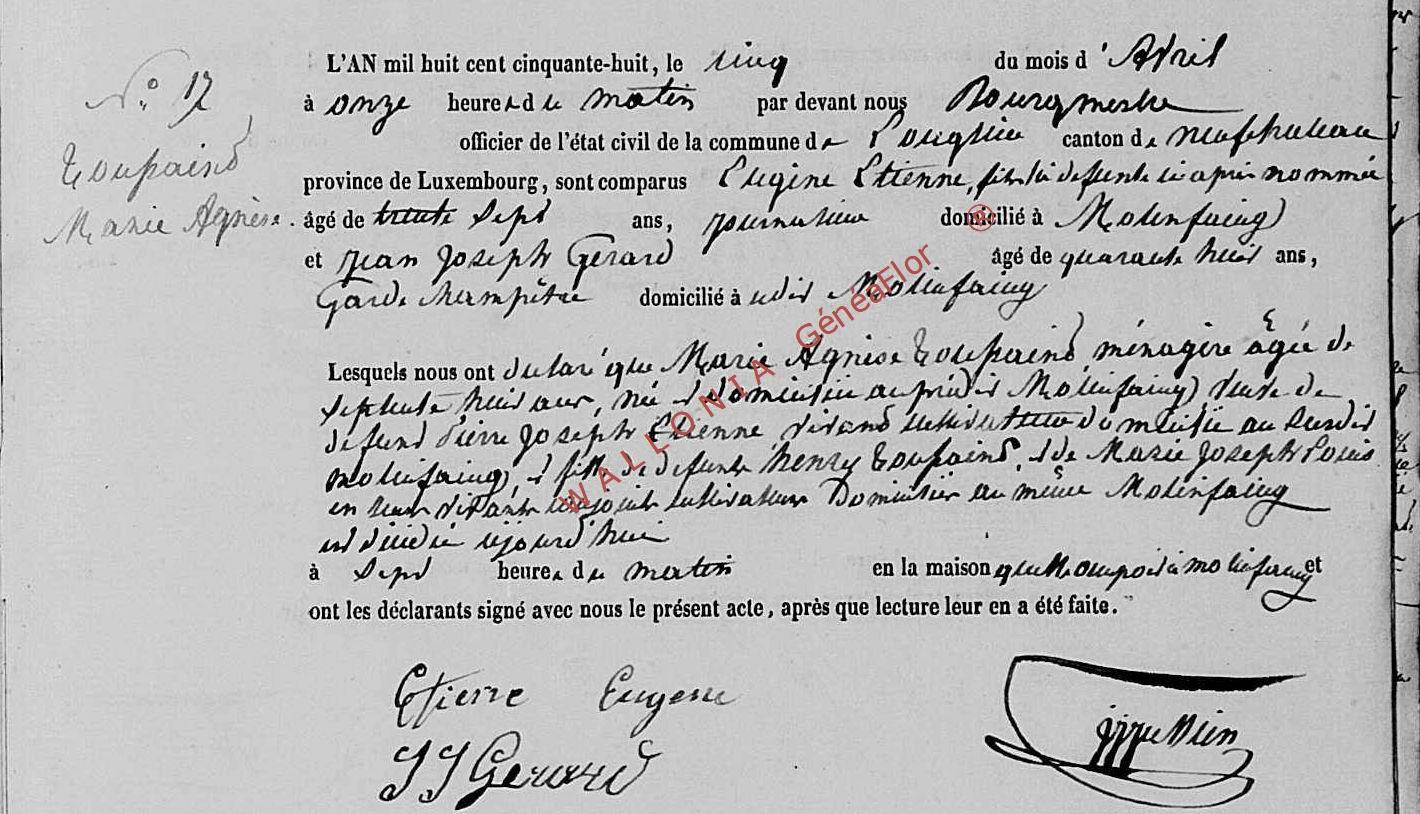 N.° 17
Toussaint
Marie Agnèse.
L'AN mil huit cent cinquante-huit, le cinq du mois d' Avril
à onze heures du matin par devant nous Bourgmestre
officier de l'état civil de la commune de Longlier canton de neufchateau
province de Luxembourg, sont comparus Eugène Etienne, fils de la défunte ci après nommée
âgé de trente sept ans, journalier domicilié à Molinfaing
et Jean Joseph Gerard âgé de quarante huit ans,
Garde Champêtre domicilié à udit Molinfaing
Lesquels nous ont déclaré que Marie Agnèse Toussaint, ménagère âgée de
septante huit ans, née et domiciliée au prédit Molinfaing, veuve de
défunt Pierre Joseph Etienne vivant cultivateur domicilié au susdit
molinfaing, et fille de défunts henry Toussaint, et de Marie Joseph Louis
en leur vivant conjoints cultivateurs Domiciliés au même Molinfaing
est décédée
à sept heures du matin en la maison molinfaing et
ont les déclarants signé avec nous le présent acte, après que lecture leur en a été faite.
Etienne Eugene
JJ Gerard
WALLONIA GénéaFlor ®